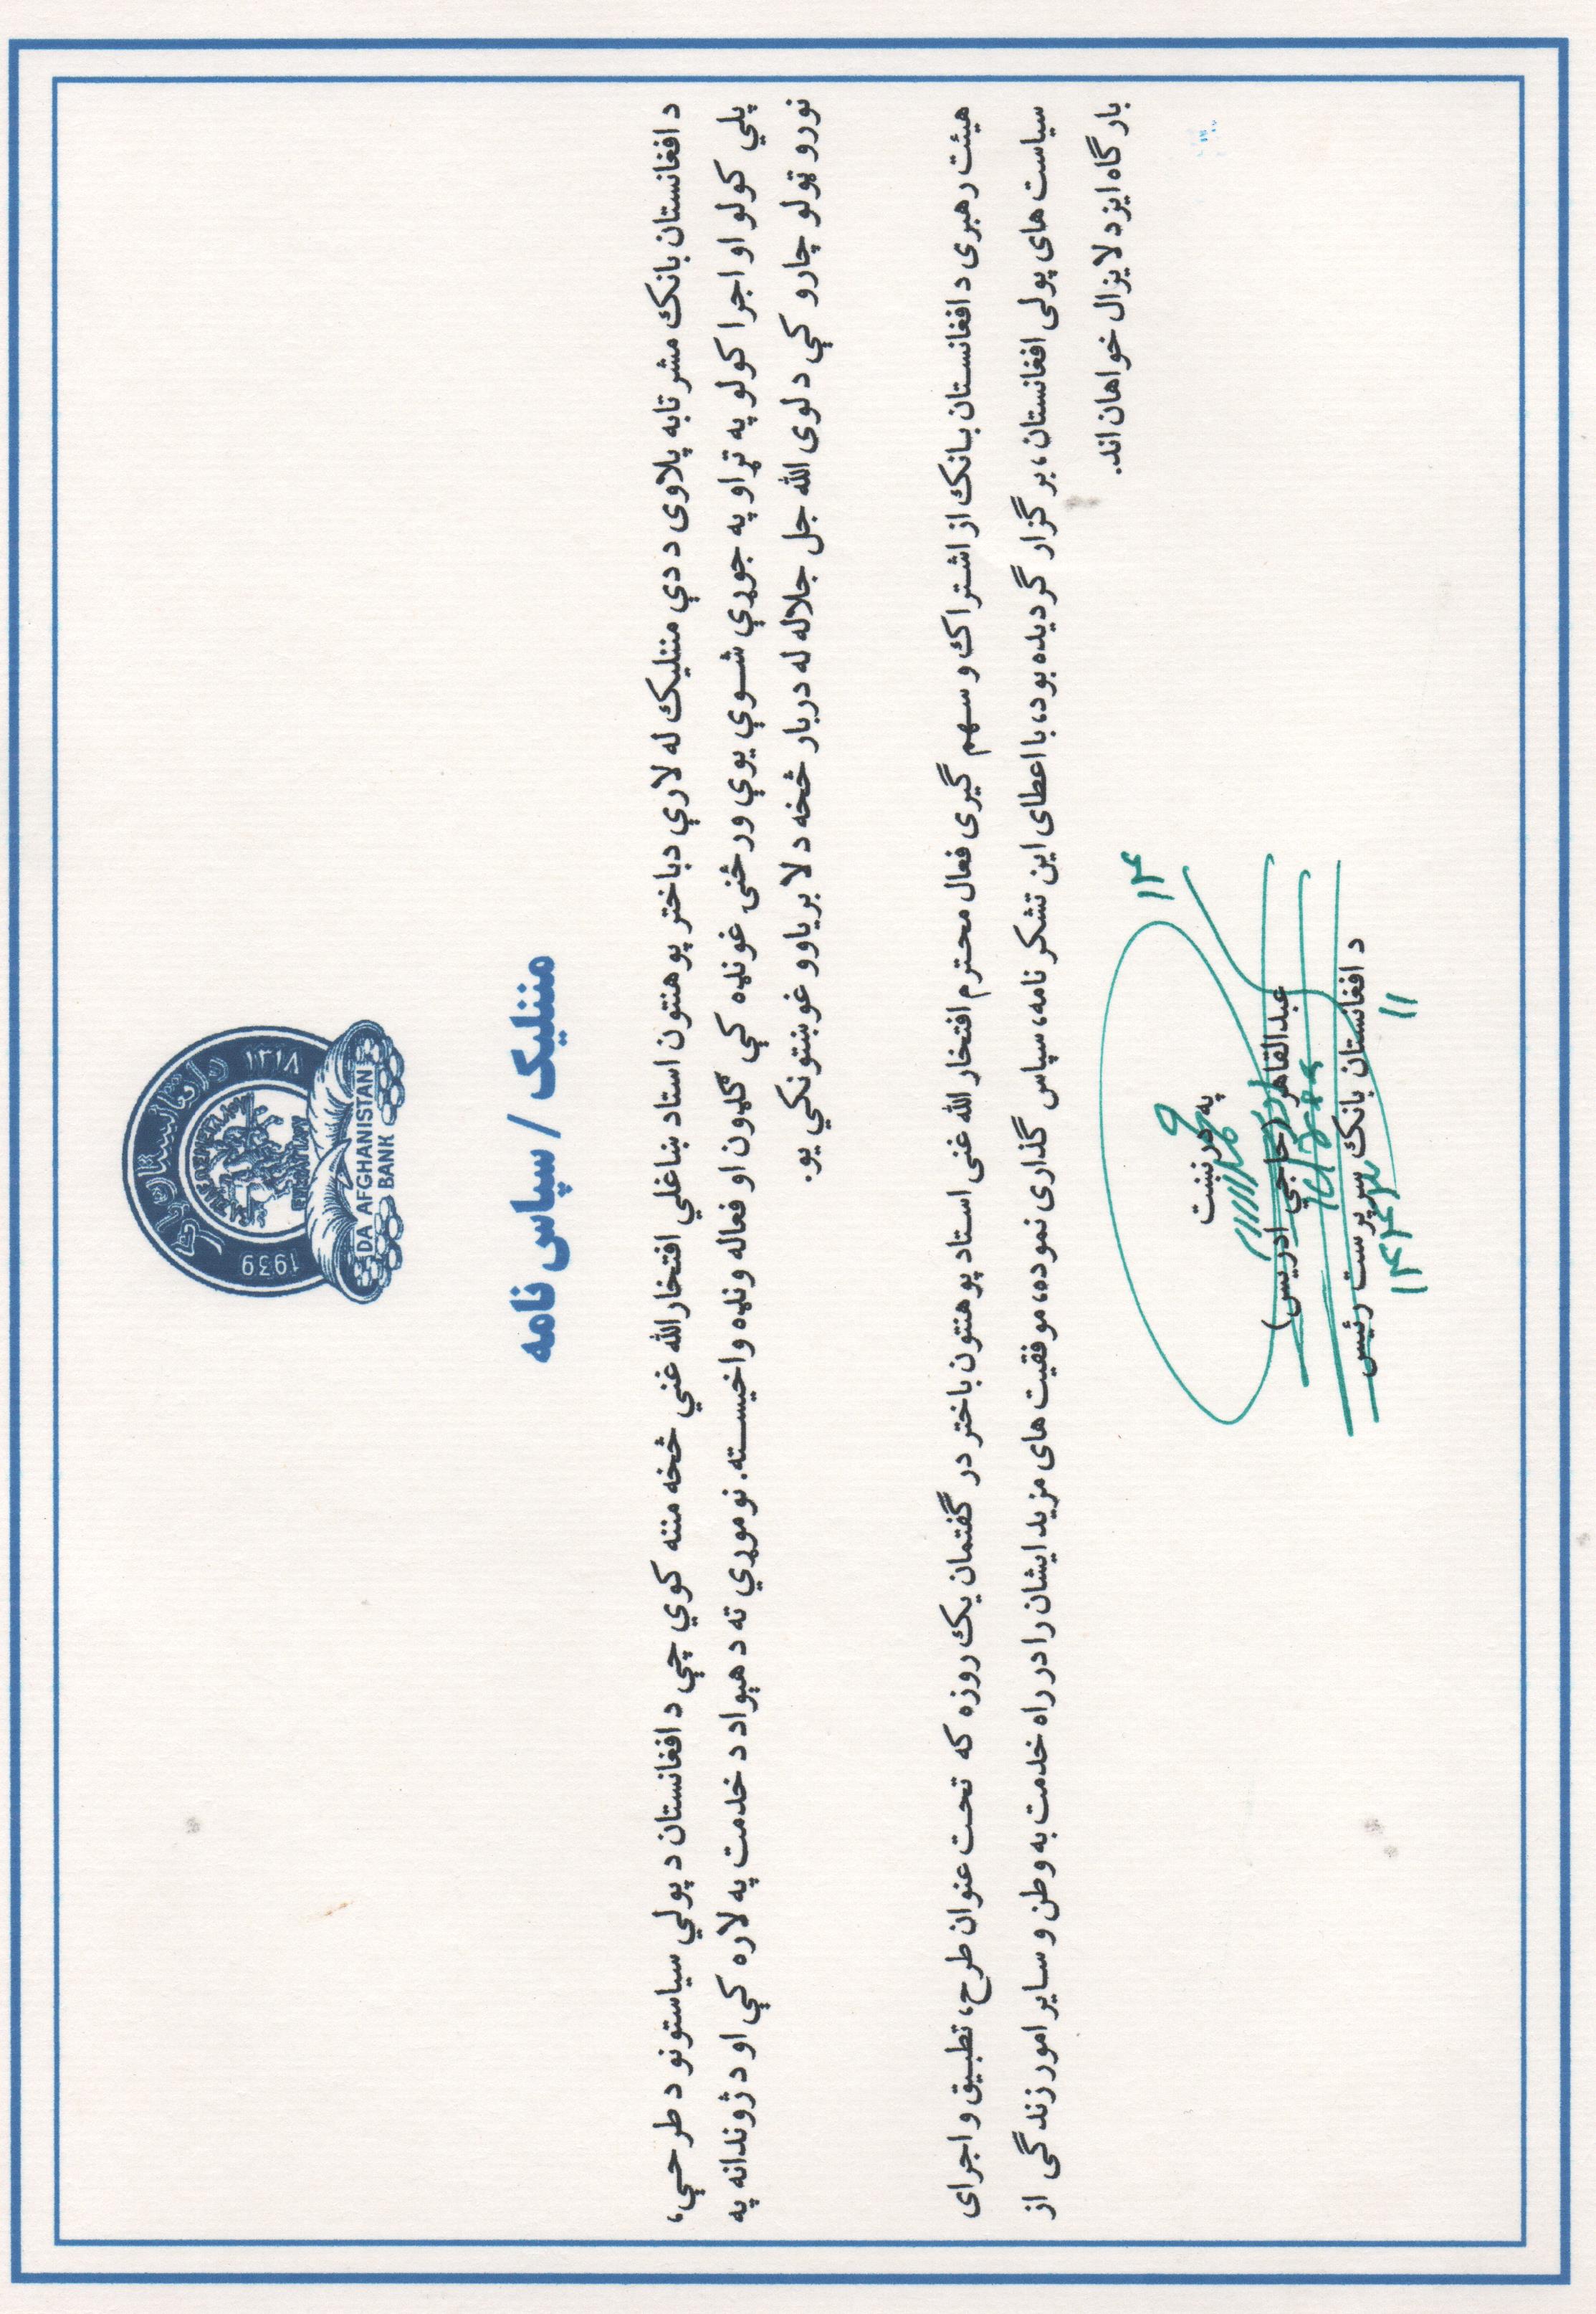 د افغانستان بانک
۱۳۱۸
1939
DA AFGHANISTAN
BANK
مننلیک / سپاس نامه
د افغانستان بانک مشرتابه پلاوی د دې مننلیک له لارې د باختر پوهنتون استاد ښاغلي افتخارالله غني څخه مننه کوي چې د افغانستان د پولي سیاستونو د طرحې،
پلي کولو او اجرا کولو په تړاو په جوړې شوې یوې ورځنۍ غونډه کې ګډون او فعاله ونډه واخیسته. نوموړي ته د هېواد د خدمت په لاره کې او د ژوندانه په
نورو ټولو چارو کې د لوی الله جل جلاله له دربار څخه د لا بریاوو غوښتونکي یو.
هیئت رهبری د افغانستان بانک از اشتراک و سهم گیری فعال محترم افتخار الله غنی استاد پوهنتون باختر در گفتمان یک روزه که تحت عنوان طرح، تطبیق و اجرای
سیاست های پولی افغانستان، برگزار گردیده بود، با اعطای این تشکر نامه، سپاس گذاری نموده، موفقیت های مزید ایشان را در راه خدمت به وطن و سایر امور زندگی از
بارگاه ایزد لایزال خواهان اند.
په درنښت
عبدالقاهر (حاجي ادریس)
د افغانستان بانک سرپرست رئیس